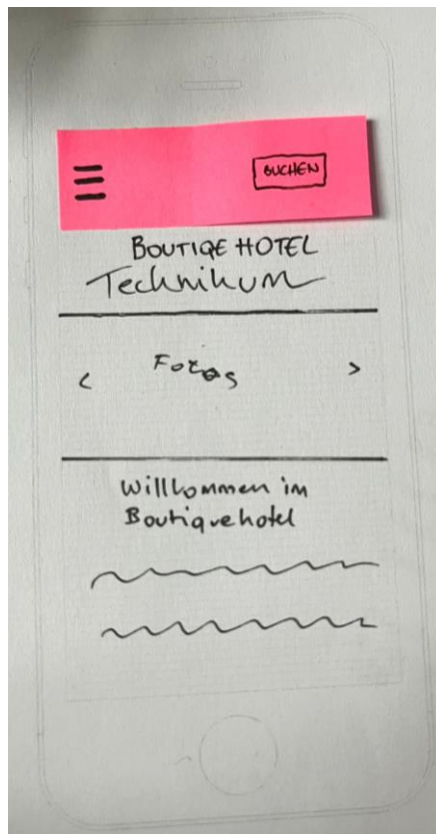 BUCHEN
BOUTIQE HOTEL
Technikum
< Fotos >
Willkommen im
Boutiquehotel